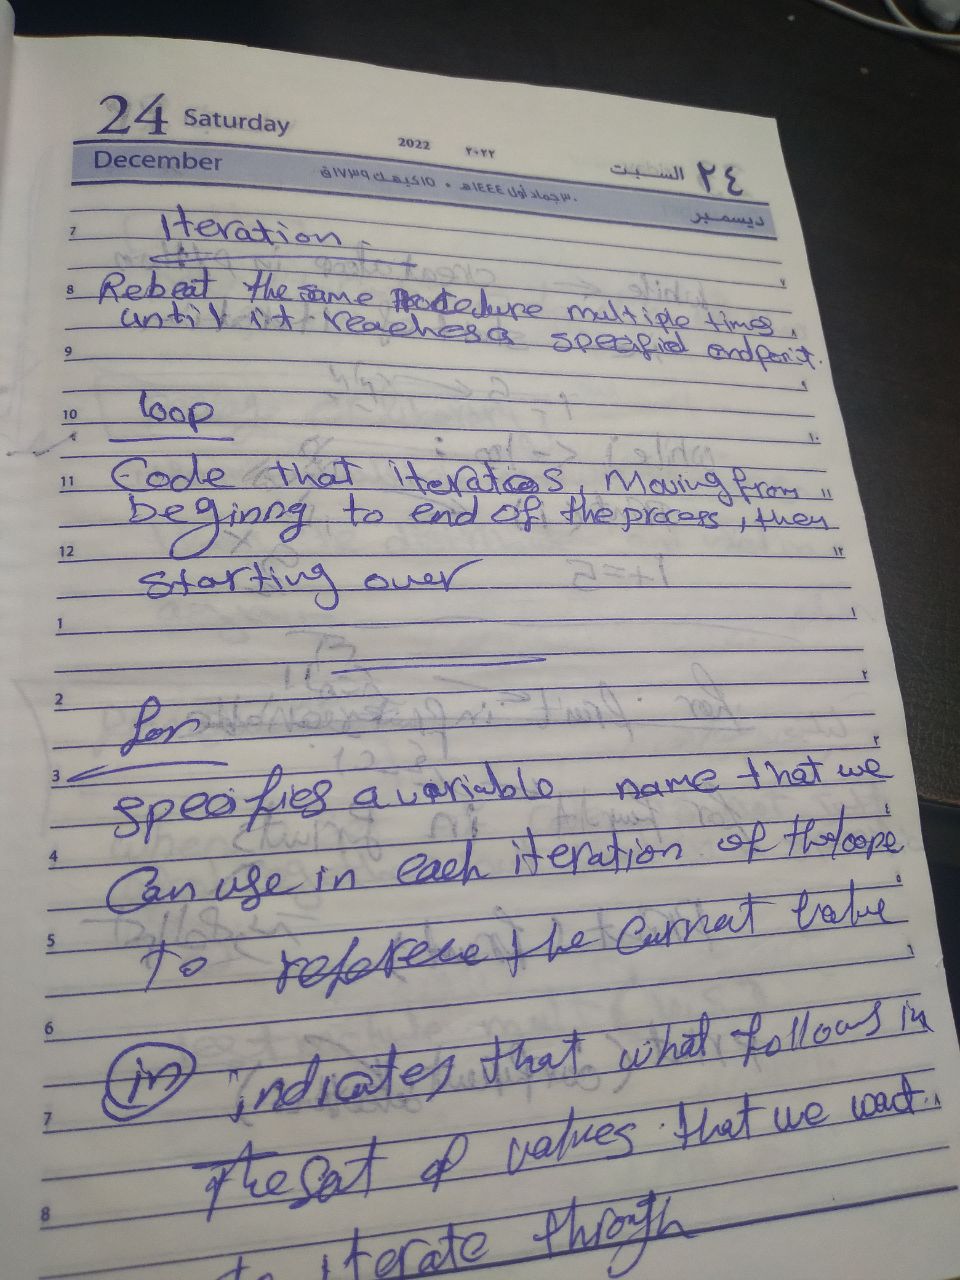 24 Saturday
2022 ٢٠٢٢
٢٤ السبت
December
٣٠جماد أول ١٤٤٤هـ • ١٥كيهك ١٧٣٩ق
ديسمبر
7 Iteration
8 Rebeat the same Procedure multiple times,
until it reaches a specified endpoint.
9
10 loop
11 Code that iterates, Moving from
beginng to end of the process, then
12 starting over
1
2
for
3 specifies a variable name that we
4 Can use in each iteration of the loope
5 To referece the Currnat Value
6
in indicates that what follows in
7 the Sat of values that we want
8 to iterate through